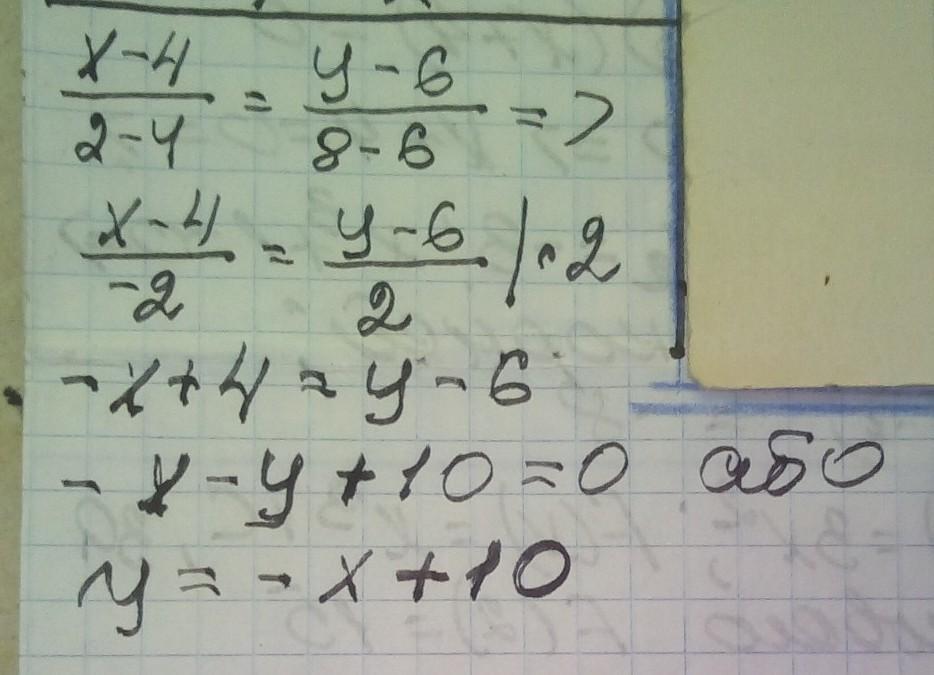 x-4/2-4 = y-6/8-6 =>
x-4/-2 = y-6/2 | · 2
-x+4 = y-6
-x-y+10=0 або
y = -x+10